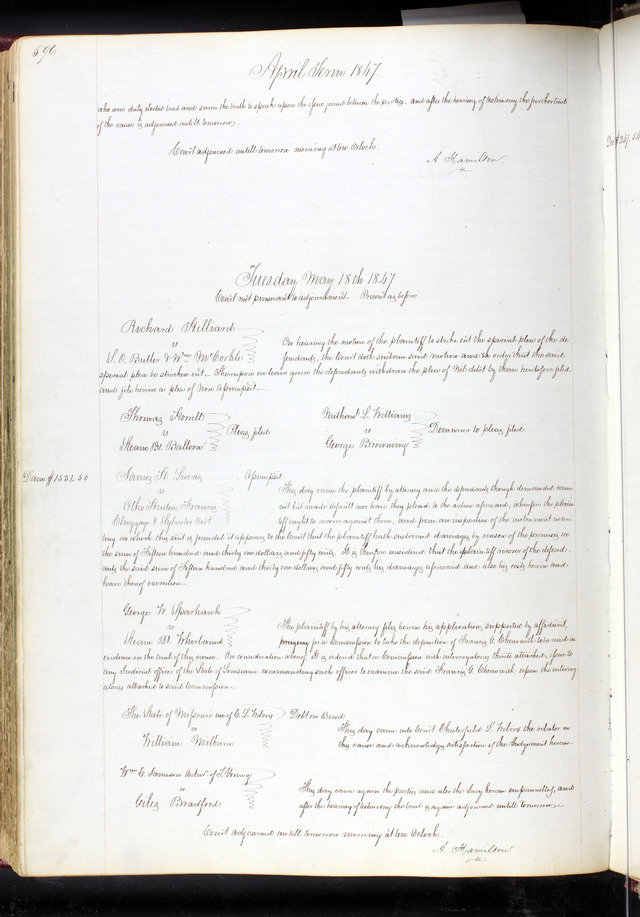 596
April Term 1847
who were duly elected tried and sworn the truth to speak upon the issue joined between the parties and after the hearing of testimony the further trial
of the cause is adjourned untill tomorrow.
Court adjourned untill tomorrow morning at ten Oclock.
A Hamilton
Tuesday May 18th 1847
Court met pursuant to adjournment. Present as before
Richard Hilliard
vs
S. O. Butler & Wm McCorkle
On hearing the motion of the plaintiff to strike out the special plea of the de
fendants, the Court doth sustain said motion and th order that the said
special plea be stricken out. Thereupon on leave given the defendants withdraw the plea of Nil debit by them heretofore filed
and file herein a plea of Non Assumpsit.
Thomas
vs
Pleas filed
Withant L. Williams
vs
George
Demurrer to pleas filed
Dam. $1531.50
James H. Lucas
vs
Otho
Assumpsit
This day came the plaintiff by attorney and the defendants though demanded came
not but made default nor have they plead to the action aforesaid, wherefore the plain
tiff ought to recover against them, and from an inspection of the instrument in wri
ting on which this suit is founded it appears to the Court that the plaintiff hath sustained damages by reason of the premises, in
the sum of Fifteen hundred and thirty one dollars and fifty cents. It is therefore considered that the plaintiff recover of the defend
ants the said sum of Fifteen hundred and thirty one dollars and fifty cents his damages aforesaid and also his costs herein and
have thereof execution.
George W. Sparhawk
vs
The plaintiff by his attorney files herein his application, supported by affidavit,
praying for a Commission to take the deposition of Francis G. Chenowith to be read in
evidence on the trial of this cause. On consideration whereof It is ordered that a Commission with interrogatories thereto attached, issue to
any Judicial officer of the State of Louisiana commanding such officer to examine the said Francis G. Chenowith upon the interrog
atories attached to said Commission.
The State of Missouri use of C. L. Wilcox
vs
William Milburn
Debt on Bond
This day came into Court Chesterfield L. Wilcox the relator in
this cause and acknowledges satisfaction of the Judgement herein
Wm C. Jamison Admr of T. Young
vs
Giles Bradford
This day came again the parties and also the Jury herein empannelled, and
after the hearing of testimony the trial is again adjourned untill tomorrow.
Court adjourned untill tomorrow morning at ten Oclock.
A. Hamilton